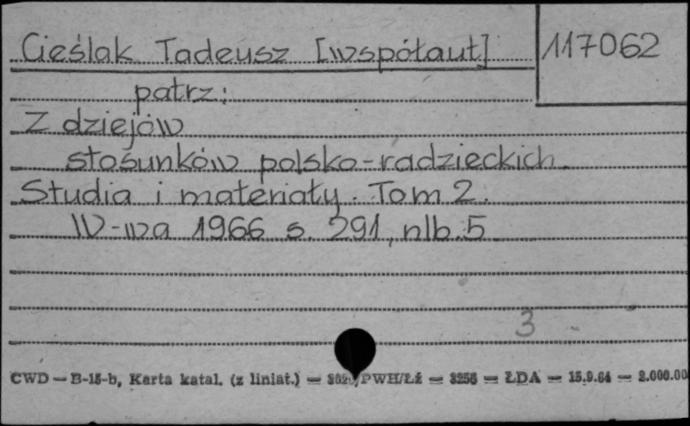 Cieślak Tadeusz [współaut] 117062
patrz:
Z dziejów
stosunków polsko-radzieckich.
Studia i materiały. Tom 2.
W-wa 1966 s. 291, nlb. 5
3
CWD — B-15-b, Karta katal. (z liniat.) — PWH/Łź — 3256 — ŁDA — 15.9.64 — 2.000.00